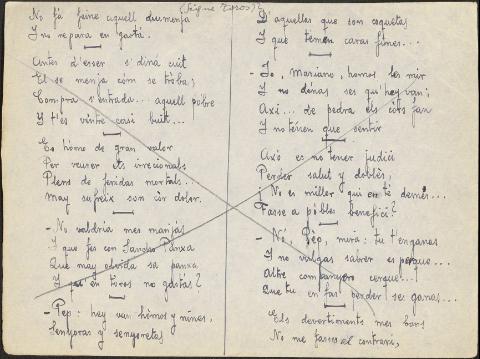 (Segueix Toros)
No fá feine aquell diumenja
Y no repara en gastá.
Antes d'esser s'diná cuit
El se menja cóm se tróba;
Compra s'entrada... aquell póbre
Y t'és vintre casi buit...
Es hóme de gran valor
Per veurer ets irrecionals
Plens de feridas mortals...
May sufreix son cór dolor.
- No valdría mes manjás
Y que fés con Sancho Panxa
Que may olvida sa panxa
Y que en tóros no gastás?
- Pep: hey van hómos y nines,
Senyoras y senyoretas
D'aquellas que son coquetas
Y que témen caras fines...
- Jo, Mariano, homos les mir
Y no dónas ses qu'hey van;
Axí... de pedra els córs fan
Y no téuen que sentir
Axó es no tener judici
Perder salut y doblés,
¡No es millor qui en té demés...
Fasse a póbles benefici?
- Nó, Pép, mira: tu t'enganas
Y no vulgas sabrer es perque...
Altre companyero cerque...!
Que tu en fas perder ses ganas...
Els devertiments mes bons
No me passes el contrari,